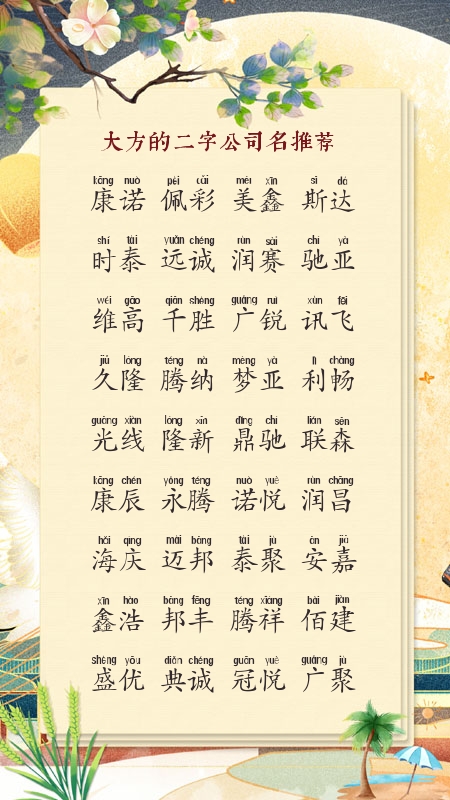 大方的二字公司名推荐
kāng nuò pèi cǎi měi xīn sī dá
康诺 佩彩 美鑫 斯达
shí tài yuǎn chéng rùn sài chí yà
时泰 远诚 润赛 驰亚
wéi gāo qiān shèng guǎng ruì xùn fēi
维高 千胜 广锐 讯飞
jiǔ lóng téng nà mèng yà lì chàng
久隆 腾纳 梦亚 利畅
guāng xiàn lóng xīn dǐng chí lián sēn
光线 隆新 鼎驰 联森
kāng chén yǒng téng nuò yuè rùn chāng
康辰 永腾 诺悦 润昌
hǎi qìng mài bāng tài jù ān jiā
海庆 迈邦 泰聚 安嘉
xīn hào bāng fēng téng xiáng bǎi jiàn
鑫浩 邦丰 腾祥 佰建
shèng yōu diǎn chéng guān yuè guǎng jù
盛优 典诚 冠悦 广聚